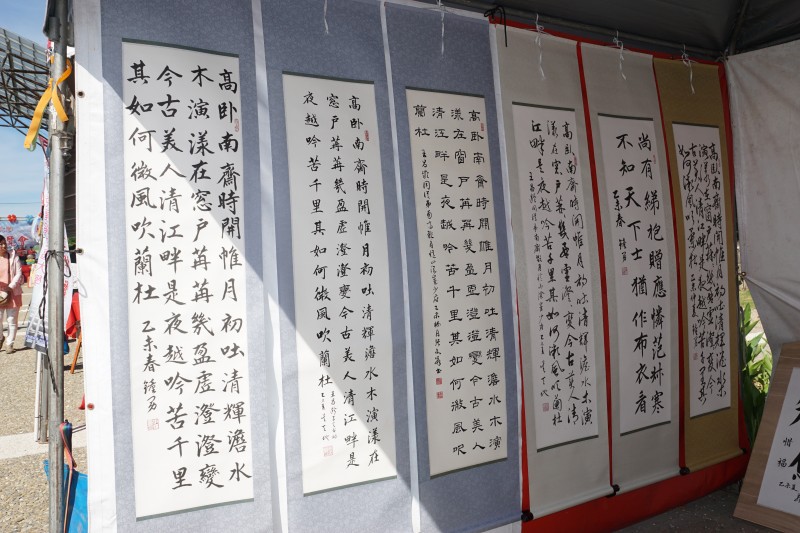 高卧南齋時開帷月初吐清輝澹水
木演漾在窓戶苒苒幾盈虛澄澄變
今古美人清江畔是夜越吟苦千里
其如何微風吹蘭杜 乙未春
高卧南齋時開帷月初吐清輝澹水木演漾在
窓戶苒苒幾盈虛澄澄變今古美人清江畔是
夜越吟苦千里其如何微風吹蘭杜
高卧南齋時開帷月初吐清輝澹水木演
漾在窗戶苒苒幾盈虛澄澄變今古美人
清江畔是夜越吟苦千里其如何微風吹
蘭杜
高卧南齋時開帷月初吐清輝澹水木演
漾在窗戶苒苒幾盈虛澄澄變今古美人清
江畔是夜越吟苦千里其如何微風吹蘭杜
尚有綈袍贈應憐范叔寒
不知天下士猶作布衣看
乙未春
高卧南齋時開帷月初吐清輝澹水木
演漾在窗戶苒苒幾盈虛澄澄變今
古美人清江畔是夜越吟苦千里其
如何微風吹蘭杜